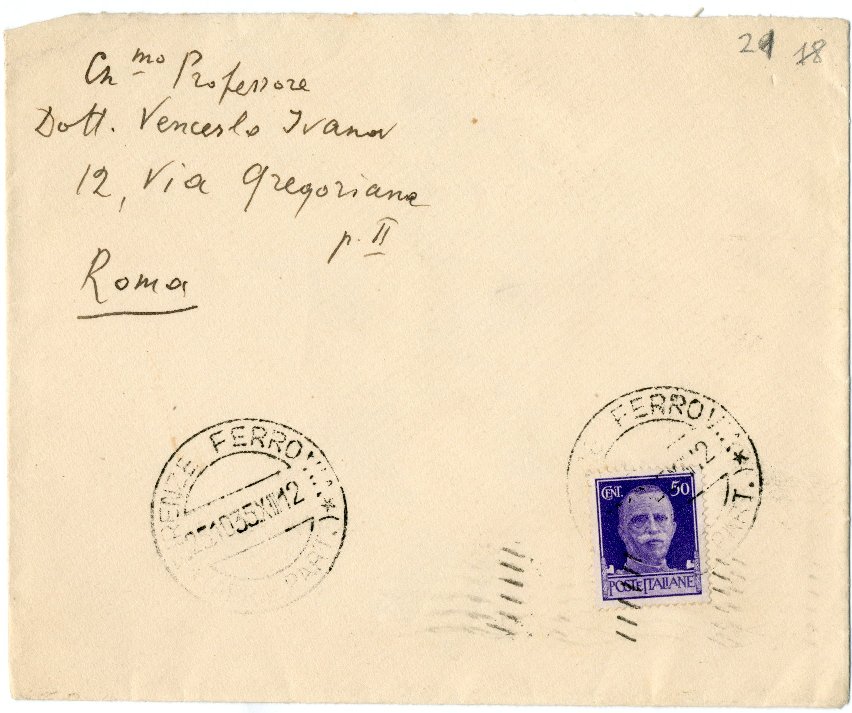 21 18
Ch mo Professore
Dott. Venceslo Ivanov
12, Via Gregoriana
p. II
Roma
RENZE FERROVIA * (PART.)
251035XIII12
FERROVIA * (PART.)
12
CENT. 50
POSTE ITALIANE